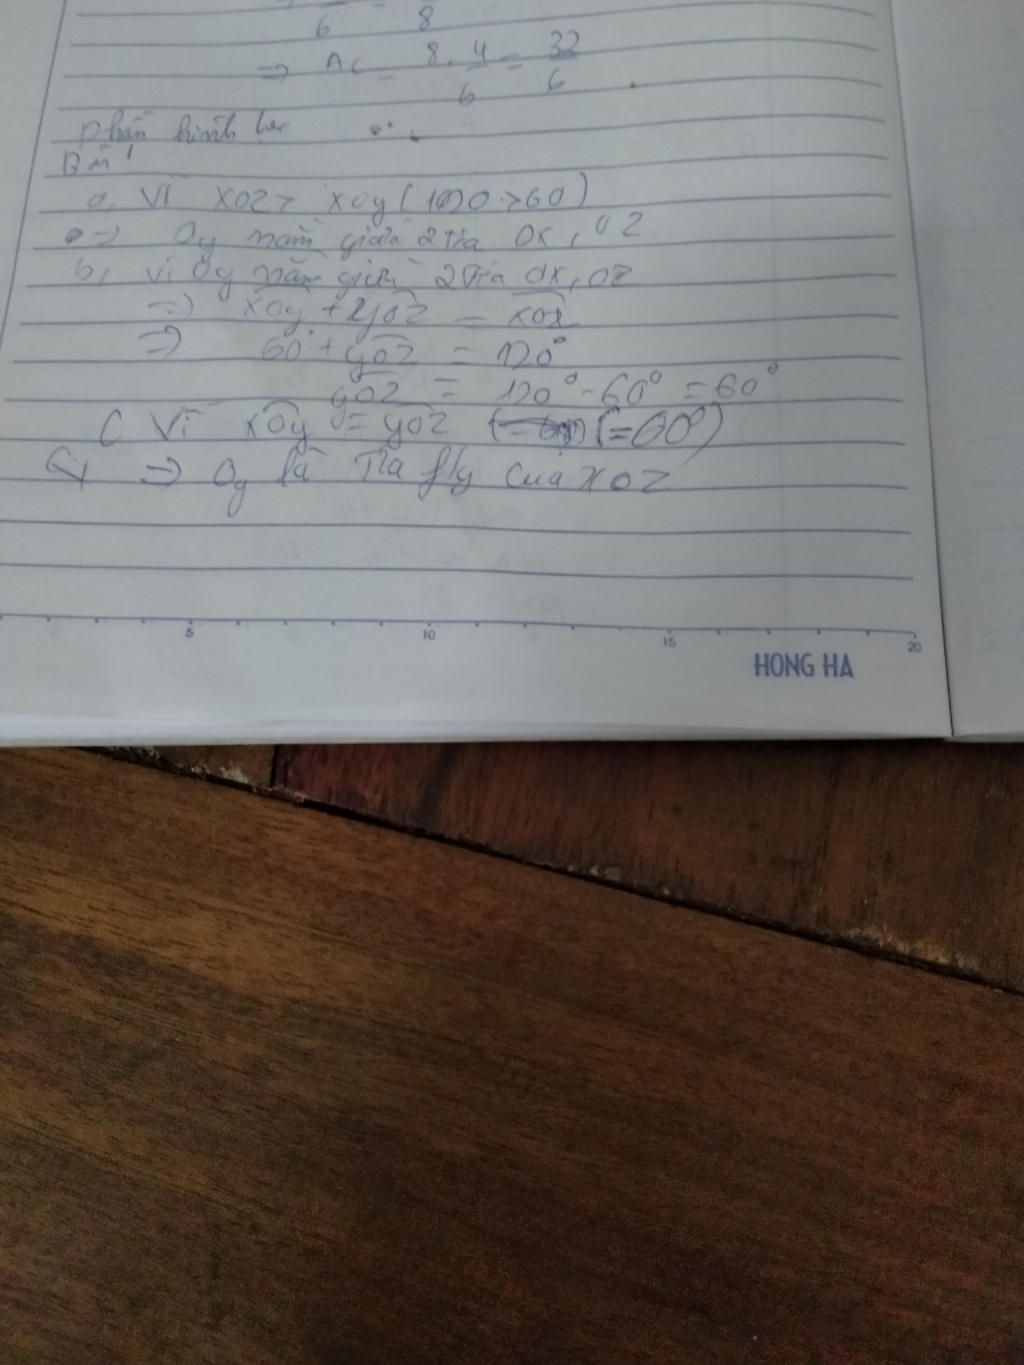 6 8
=> AC = 8.4/6 = 32/6
phần hình học
Bài 1
a, Vì xOz > xOy (120 > 60)
=> Oy nằm giữa 2 tia Ox, Oz
b, Vì Oy nằm giữa 2 tia Ox, Oz
=> xOy + yOz = xOz
=> 60° + yOz = 120°
yOz = 120° - 60° = 60°
C Vì xOy = yOz (= 60°)
=> Oy là Tia f/g của xOz
5 10 15 20
HONG HA